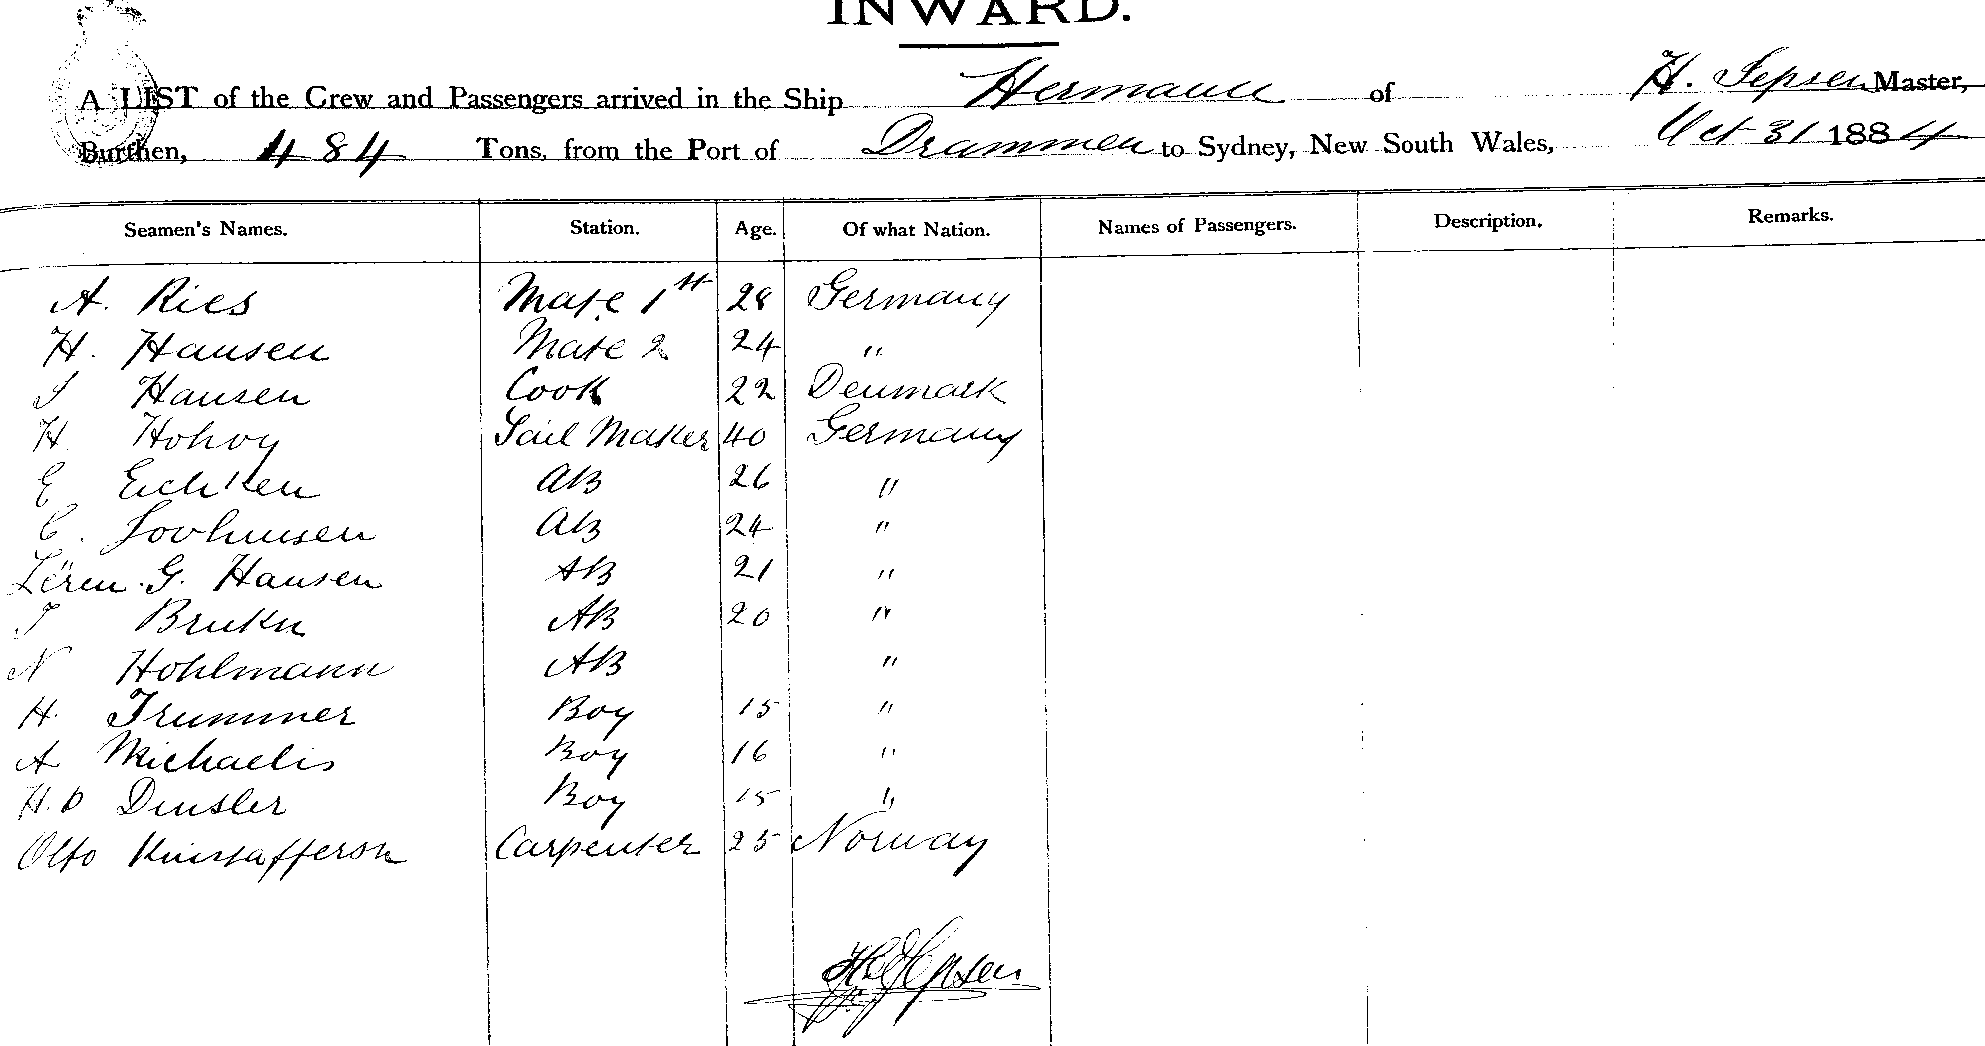 INWARD.
A LIST of the Crew and Passengers arrived in the Ship Hermann of H. Jepsen Master,
Burthen, 484 Tons, from the Port of Drammen to Sydney, New South Wales, Oct 31 1884
Seamen's Names. Station. Age. Of what Nation. Names of Passengers. Description. Remarks.
A. Ries Mate 1st 28 Germany
H. Hansen Mate 2 24 "
J Hansen Cook 22 Denmark
H Hohoy Sail Maker 40 Germany
E AB 26 "
C. AB 24 "
G. Hansen AB 21 "
J AB 20 "
N Hohlmann AB "
H. Trummer Boy 15 "
A Michaelis Boy 16 "
H. D Boy 15 "
Otto Carpenter 25 Norway
H Jepsen